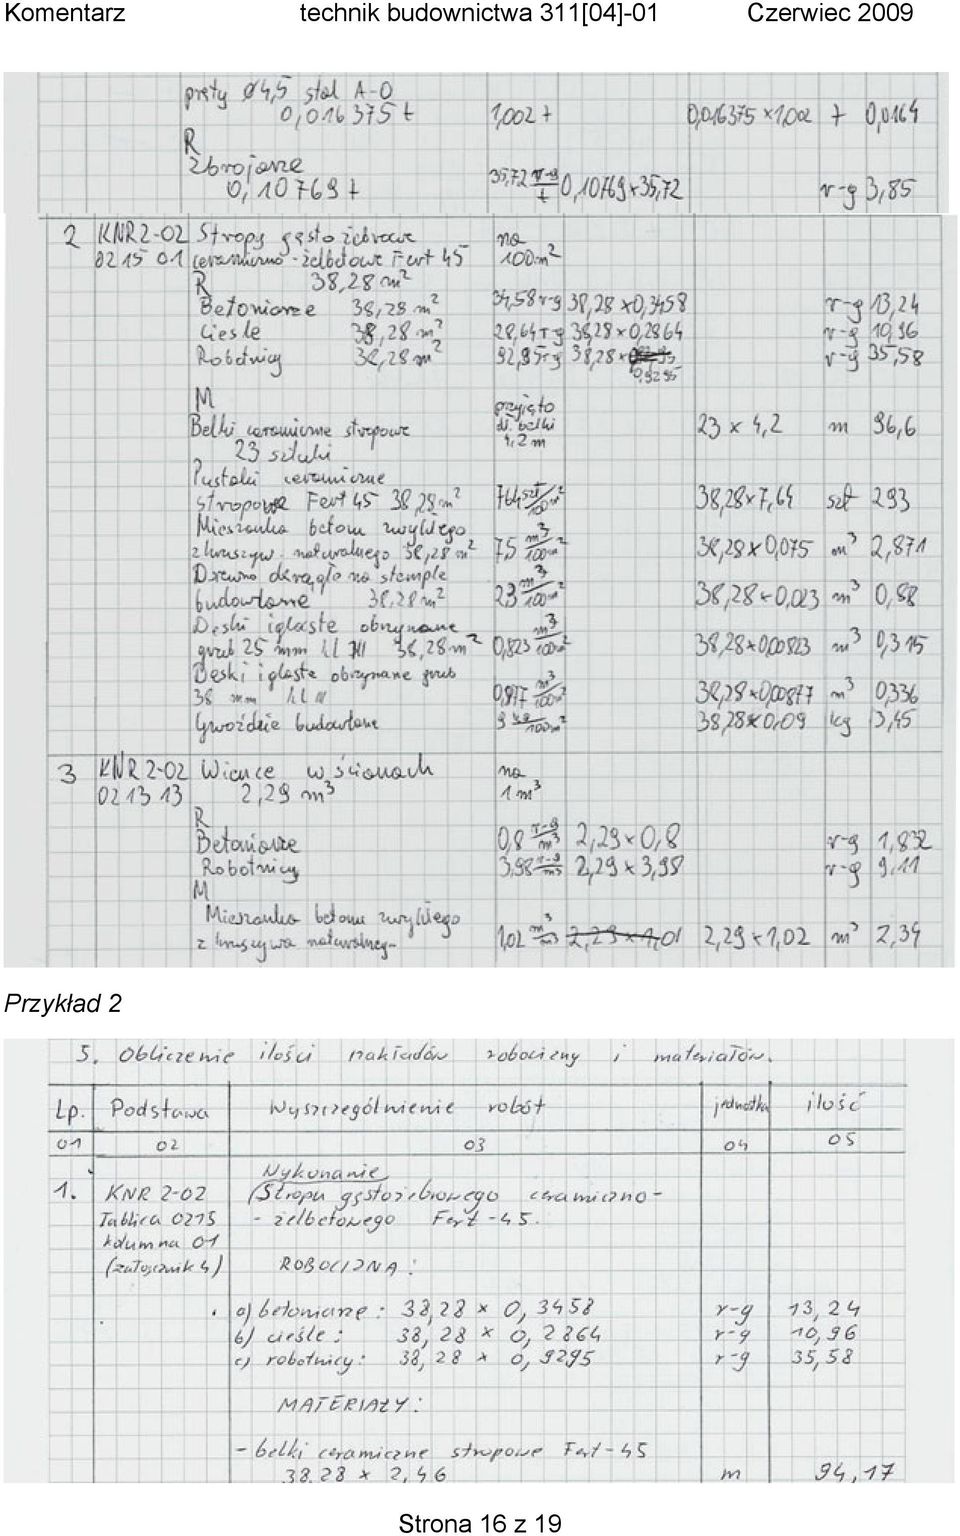 Komentarz technik budownictwa 311[04]-01 Czerwiec 2009
pręty Ø4,5 stal A-0
0,016375 t 1,002 t 0,016375 x 1,002 t 0,0164
R
Zbrojarze
0,10769 t 35,72 r-g/t 0,10769 x 35,72 r-g 3,85
2 KNR 2-02 Stropy gęsto żebrowe na
0215 01 ceramiczno-żelbetowe Fert 45 100 m²
R 38,28 m²
Betoniarze 38,28 m² 34,58 r-g 38,28 x 0,3458 r-g 13,24
Cieśle 38,28 m² 28,64 r-g 38,28 x 0,2864 r-g 10,96
Robotnicy 38,28 m² 92,95 r-g 38,28 x 0,9295 r-g 35,58
M
Belki ceramiczne stropowe przyjęto dł. belki 4,2 m 23 x 4,2 m 96,6
23 sztuki
Pustaki ceramiczne
stropowe Fert 45 38,28 m² 764 szt/100m² 38,28 x 7,64 szt 293
Mieszanka betonu zwykłego
z kruszyw. naturalnego 38,28 m² 7,5 m³/100m² 38,28 x 0,075 m³ 2,871
Drewno okrągłe na stemple
budowlane 38,28 m² 2,3 m³/100m² 38,28 x 0,023 m³ 0,88
Deski iglaste obrzynane
grub 25 mm kl III 38,28 m² 0,823 m³/100m² 38,28 x 0,00823 m³ 0,315
Deski iglaste obrzynane grub
38 mm kl III 0,877 m³/100m² 38,28 x 0,00877 m³ 0,336
Gwoździe budowlane 9 kg/100m² 38,28 x 0,09 kg 3,45
3 KNR 2-02 Wieńce w ścianach na
0213 13 2,29 m³ 1 m³
R
Betoniarze 0,8 r-g/m³ 2,29 x 0,8 r-g 1,832
Robotnicy 3,98 r-g/m³ 2,29 x 3,98 r-g 9,11
M
Mieszanka betonu zwykłego
z kruszywa naturalneg- 1,02 m³/m³ 2,29 x 1,01 2,29 x 1,02 m³ 2,34
Przykład 2
5. Obliczenie ilości nakładów robocizny i materiałów.
Lp. Podstawa Wyszczególnienie robót jednostka ilość
01 02 03 04 05
Wykonanie
1. KNR 2-02 Stropu gęstożebrowego ceramiczno-
Tablica 0215 - żelbetowego Fert-45.
kolumna 01
(załącznik 4) ROBOCIZNA:
a) betoniarze: 38,28 x 0,3458 r-g 13,24
b) cieśle: 38,28 x 0,2864 r-g 10,96
c) robotnicy: 38,28 x 0,9295 r-g 35,58
MATERIAŁY:
- belki ceramiczne stropowe Fert-45
38,28 x 2,46 m 94,17
Strona 16 z 19